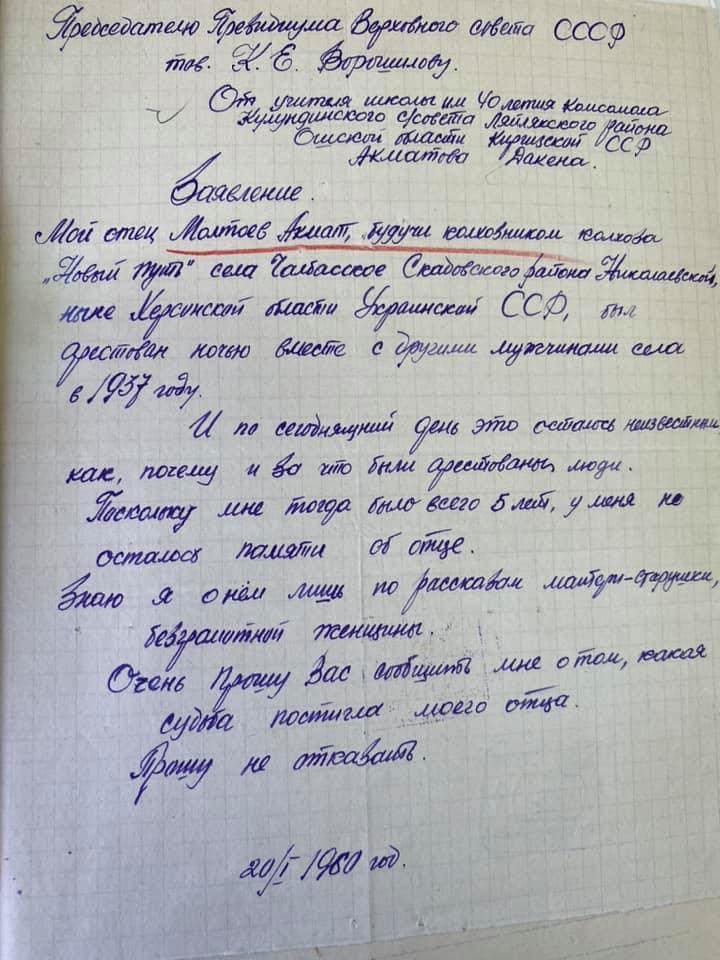 Председателю Президиума Верховного совета СССР
тов. К. Е. Ворошилову.
От учителя школы им 40 летия Комсомола
Кулундинского с/совета Ляйлякского района
Ошской области Киргизской ССР
Акматова Дакена.
Заявление.
Мой отец Молтоев Акмат, будучи колхозником колхоза
„Новый путь" села Чалбасское Скадовского района Николаевской,
ныне Херсонской области Украинской ССР, был
арестован ночью вместе с другими мужчинами села
в 1937 году.
И по сегодняшний день это осталось неизвестным
как, почему и за что были арестованы люди.
Поскольку мне тогда было всего 5 лет, у меня не
осталось памяти об отце.
Знаю я о нём лишь по рассказам матери-старушки,
безграмотной женщины.
Очень прошу Вас сообщить мне о том, какая
судьба постигла моего отца.
Прошу не отказать.
20/I 1960 год.